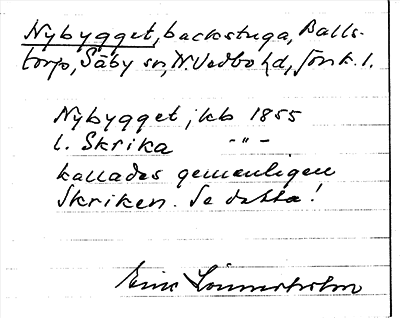 Nybygget, backstuga, Balls-
torp, Säby sn, N. Vedbo hd, Jönk. l.
Nybygget, kb 1855
l. Skrika -"-
kallades gemenligen
Skriken. Se detta!